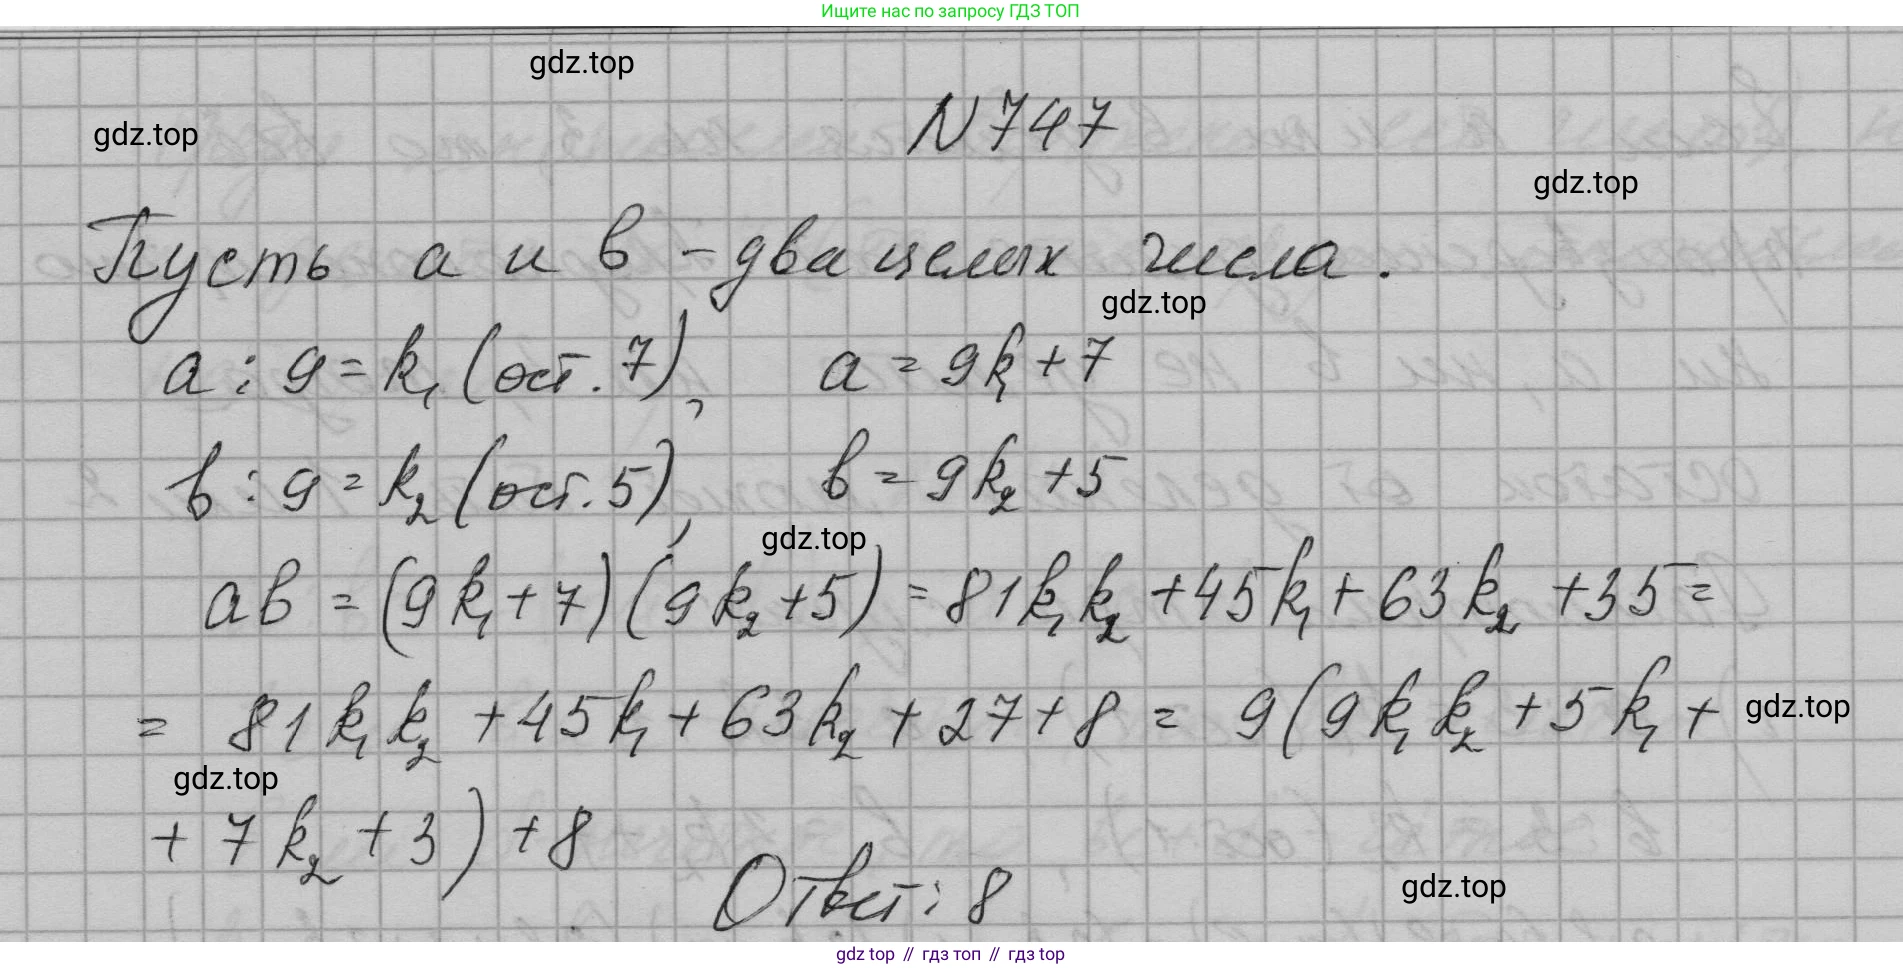 Ищите нас по запросу ГДЗ ТОП
gdz.top
N 747
gdz.top
gdz.top
Пусть а и в - два целых числа.
gdz.top
a : 9 = k₁ (ост. 7), a = 9k₁ + 7
в : 9 = k₂ (ост. 5), в = 9k₂ + 5
gdz.top
aв = (9k₁ + 7)(9k₂ + 5) = 81k₁k₂ + 45k₁ + 63k₂ + 35 =
= 81k₁k₂ + 45k₁ + 63k₂ + 27 + 8 = 9(9k₁k₂ + 5k₁ +
gdz.top
gdz.top
+ 7k₂ + 3) + 8
Ответ: 8
gdz.top
gdz top // гдз топ // гдз top